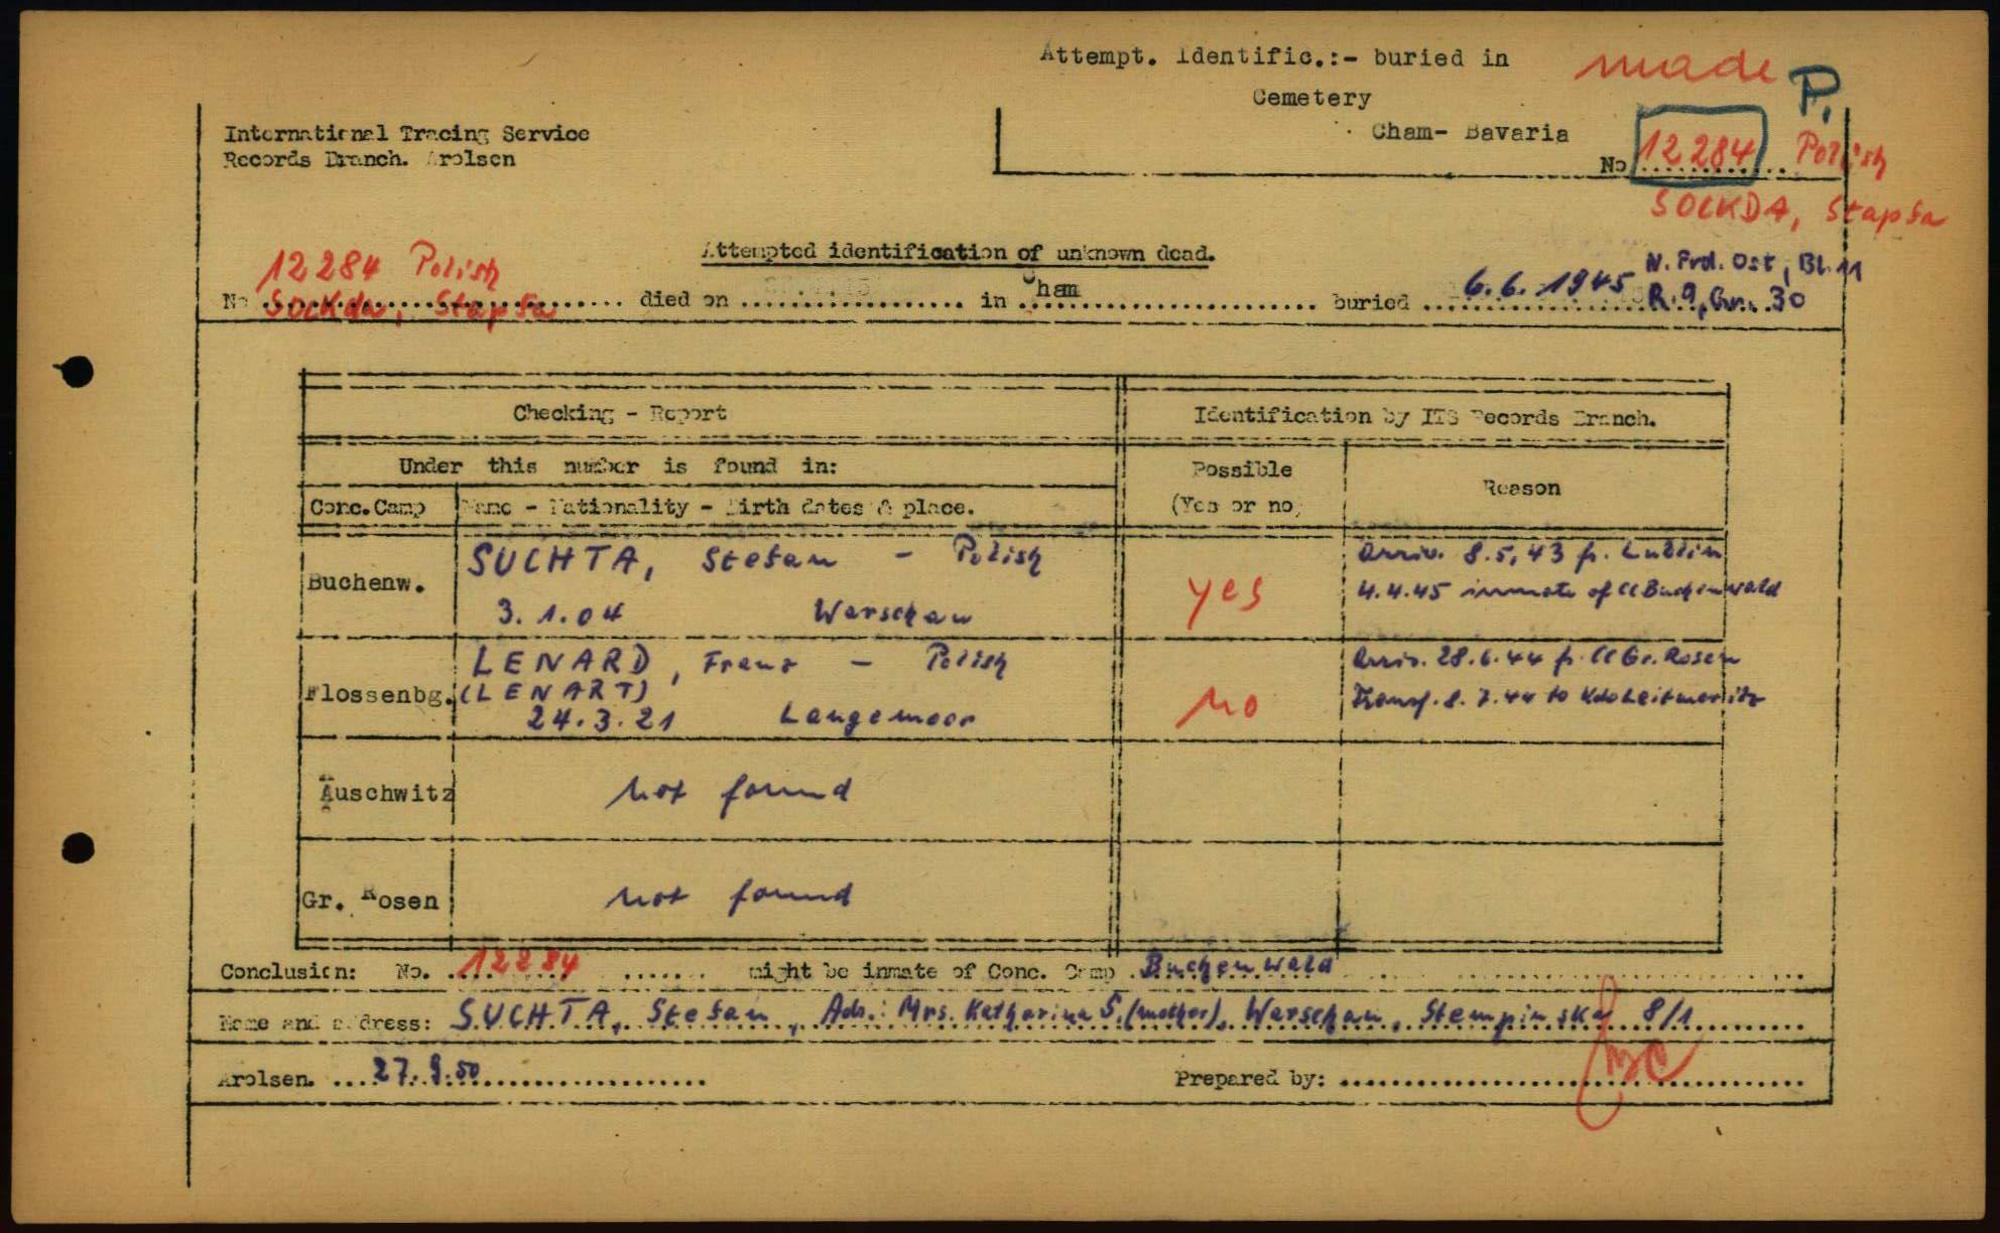 Attempt. Identific.:- buried in
made
P.
Cemetery
Cham- Bavaria
International Tracing Service
Records Branch. Arolsen
No 12284 Polish
SOCKDA, Stapfa
Attempted identification of unknown dead.
12284 Polish
N. Frd. Ost, Bl. 11
No Sockda, Stapfa died on in Cham buried 6.6.1945 R. 9, Gr. 30
Checking - Report
Identification by ITS Records Branch.
Under this number is found in:
Possible
(Yes or no)
Reason
Conc.Camp
Name - Nationality - Birth dates & place.
Buchenw.
SUCHTA, Stefan - Polish
3.1.04 Warschau
yes
Arriv. 8.5.43 fr. Lublin
4.4.45 inmate of CC Buchenwald
Flossenbg.
LENARD, Franz - Polish
(LENART)
24.3.21 Langemoor
no
Arriv. 28.6.44 fr. CC Gr. Rosen
Transf. 8.7.44 to Kdo Leitmeritz
Auschwitz
not found
Gr. Rosen
not found
Conclusion: No. 12284 might be inmate of Conc. Camp Buchenwald
Name and address: SUCHTA, Stefan, Adr.: Mrs. Katharina S. (mother), Warschau, Stempinska 8/1
Arolsen. 27.9.50
Prepared by: